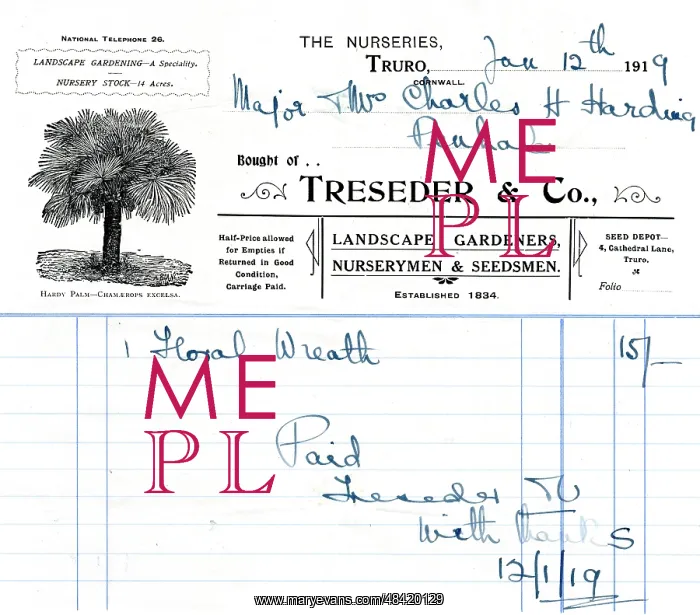 NATIONAL TELEPHONE 26.
LANDSCAPE GARDENING—A Speciality.
NURSERY STOCK—14 Acres.
HARDY PALM—CHAMÆROPS EXCELSA.
THE NURSERIES,
TRURO, Jan 12th 1919
CORNWALL.
Major & Mrs Charles H Harding
Bought of . .
TRESEDER & Co.,
Half-Price allowed
for Empties if
Returned in Good
Condition,
Carriage Paid.
LANDSCAPE GARDENERS,
NURSERYMEN & SEEDSMEN.
ESTABLISHED 1834.
SEED DEPOT—
4, Cathedral Lane,
Truro.
Folio
1 Floral Wreath 15/–
Paid
Treseder
With thanks
12/1/19
ME
PL
ME
PL
www.maryevans.com/48420129